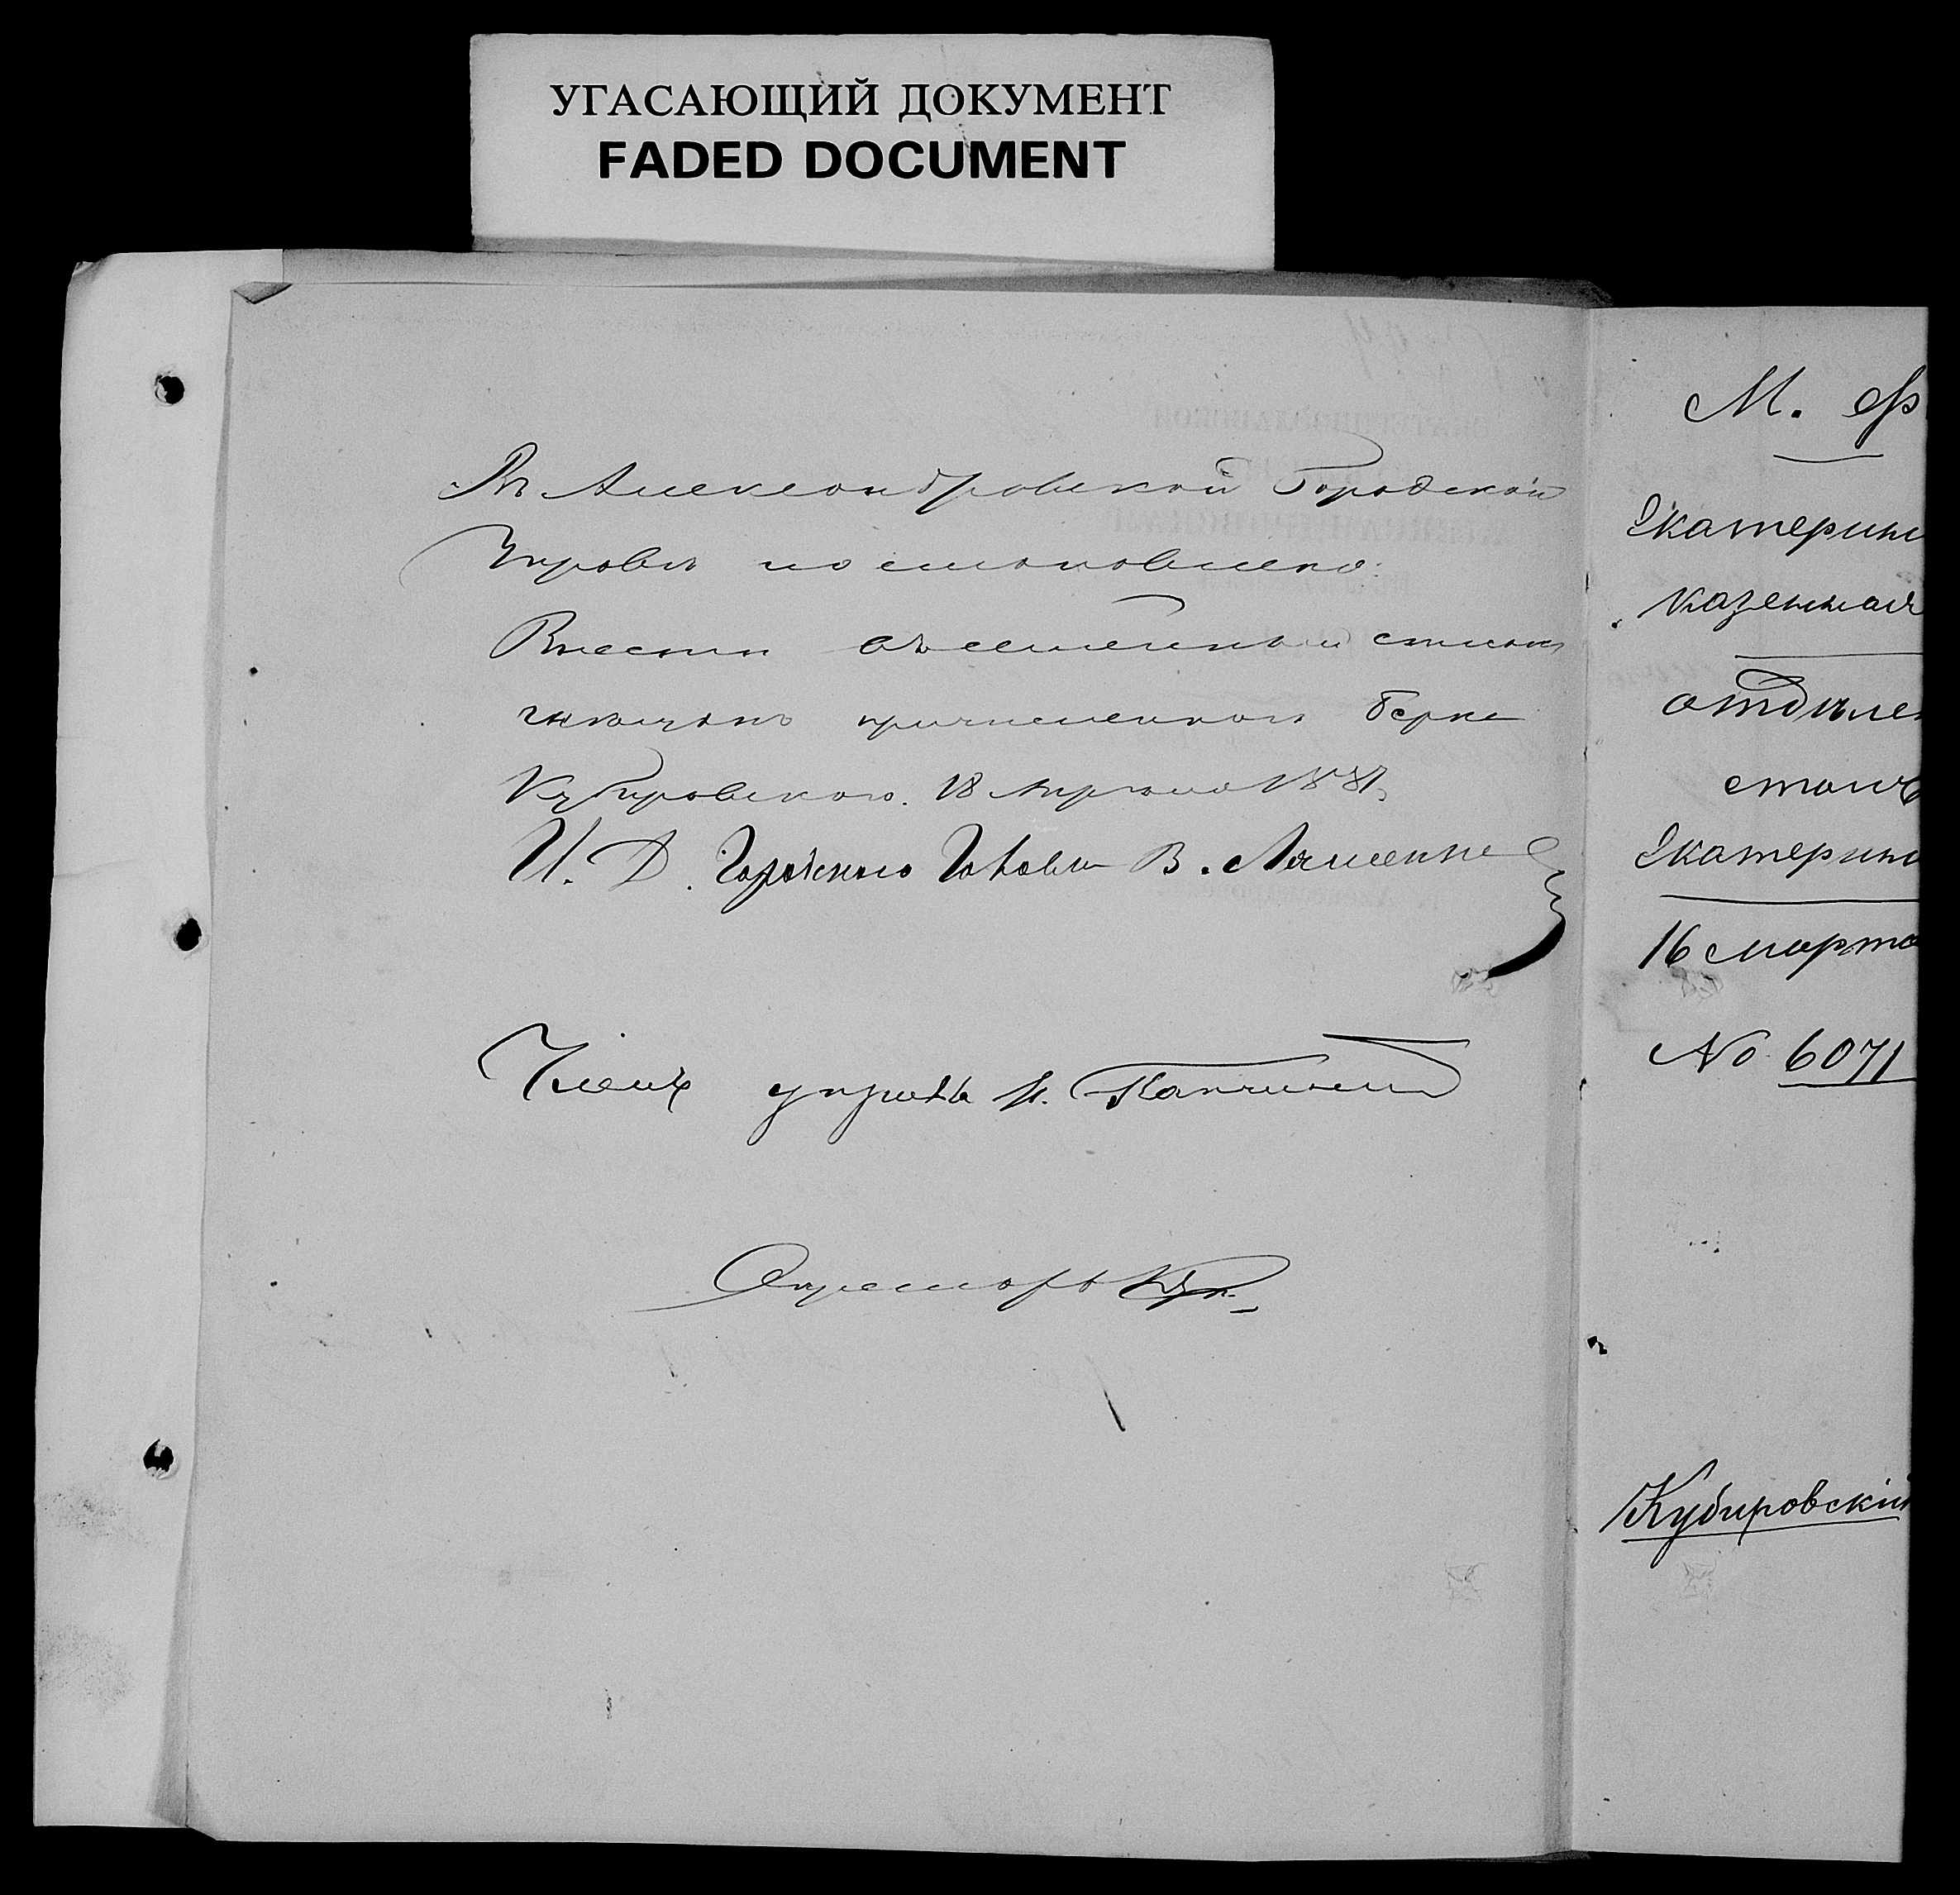 УГАСАЮЩИЙ ДОКУМЕНТ
FADED DOCUMENT
Въ Александровской Городской
Управѣ постановлено:
Внести въ семейный списокъ
причисленнаго Берка
Кубировскаго. 18 Апрѣля 1881
И. Д. Городского Головы В. Ляшенко
Членъ управы И.
Секретарь
М. Ф
Екатерин
казенная
отдѣлен
столъ
Екатерин
16 марта
№ 6071
Кубировскій